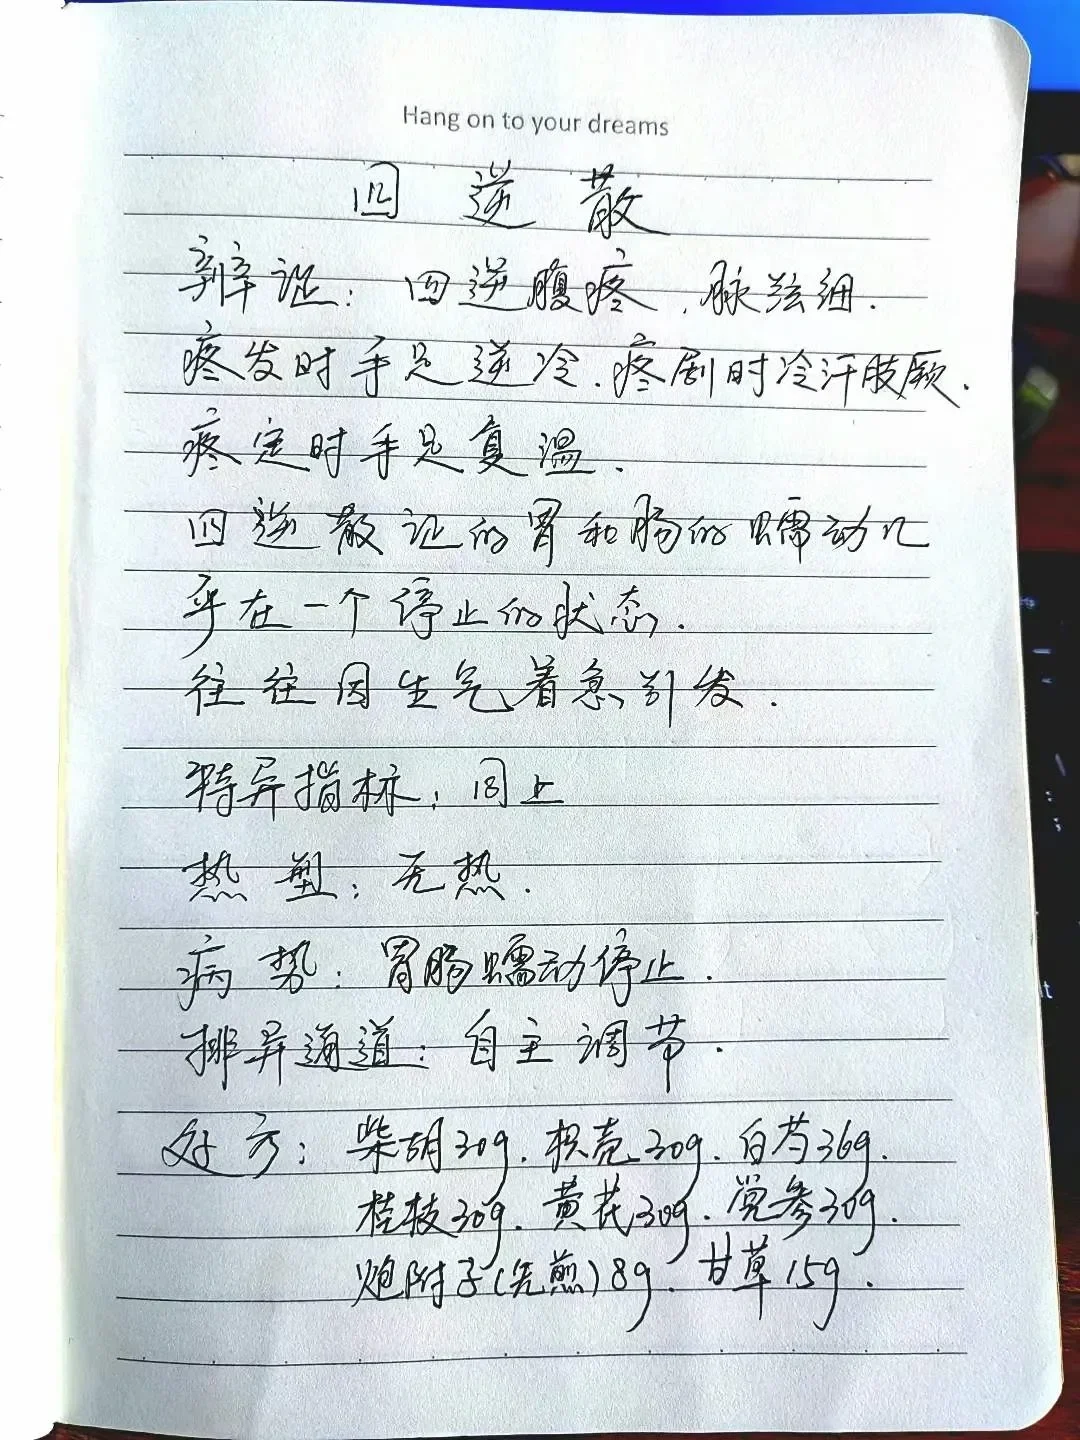 Hang on to your dreams
四逆散
辨证：四逆腹疼、脉弦细.
疼发时手足逆冷、疼剧时冷汗肢厥.
疼定时手足复温.
四逆散证的胃和肠的蠕动几
乎在一个停止的状态.
往往因生气着急引发.
特异指标：同上
热型：无热.
病势：胃肠蠕动停止.
排异通道：自主调节.
处方：柴胡30g.枳壳30g.白芍36g.
桂枝30g.黄芪30g.党参30g.
炮附子(先煎)8g.甘草15g.